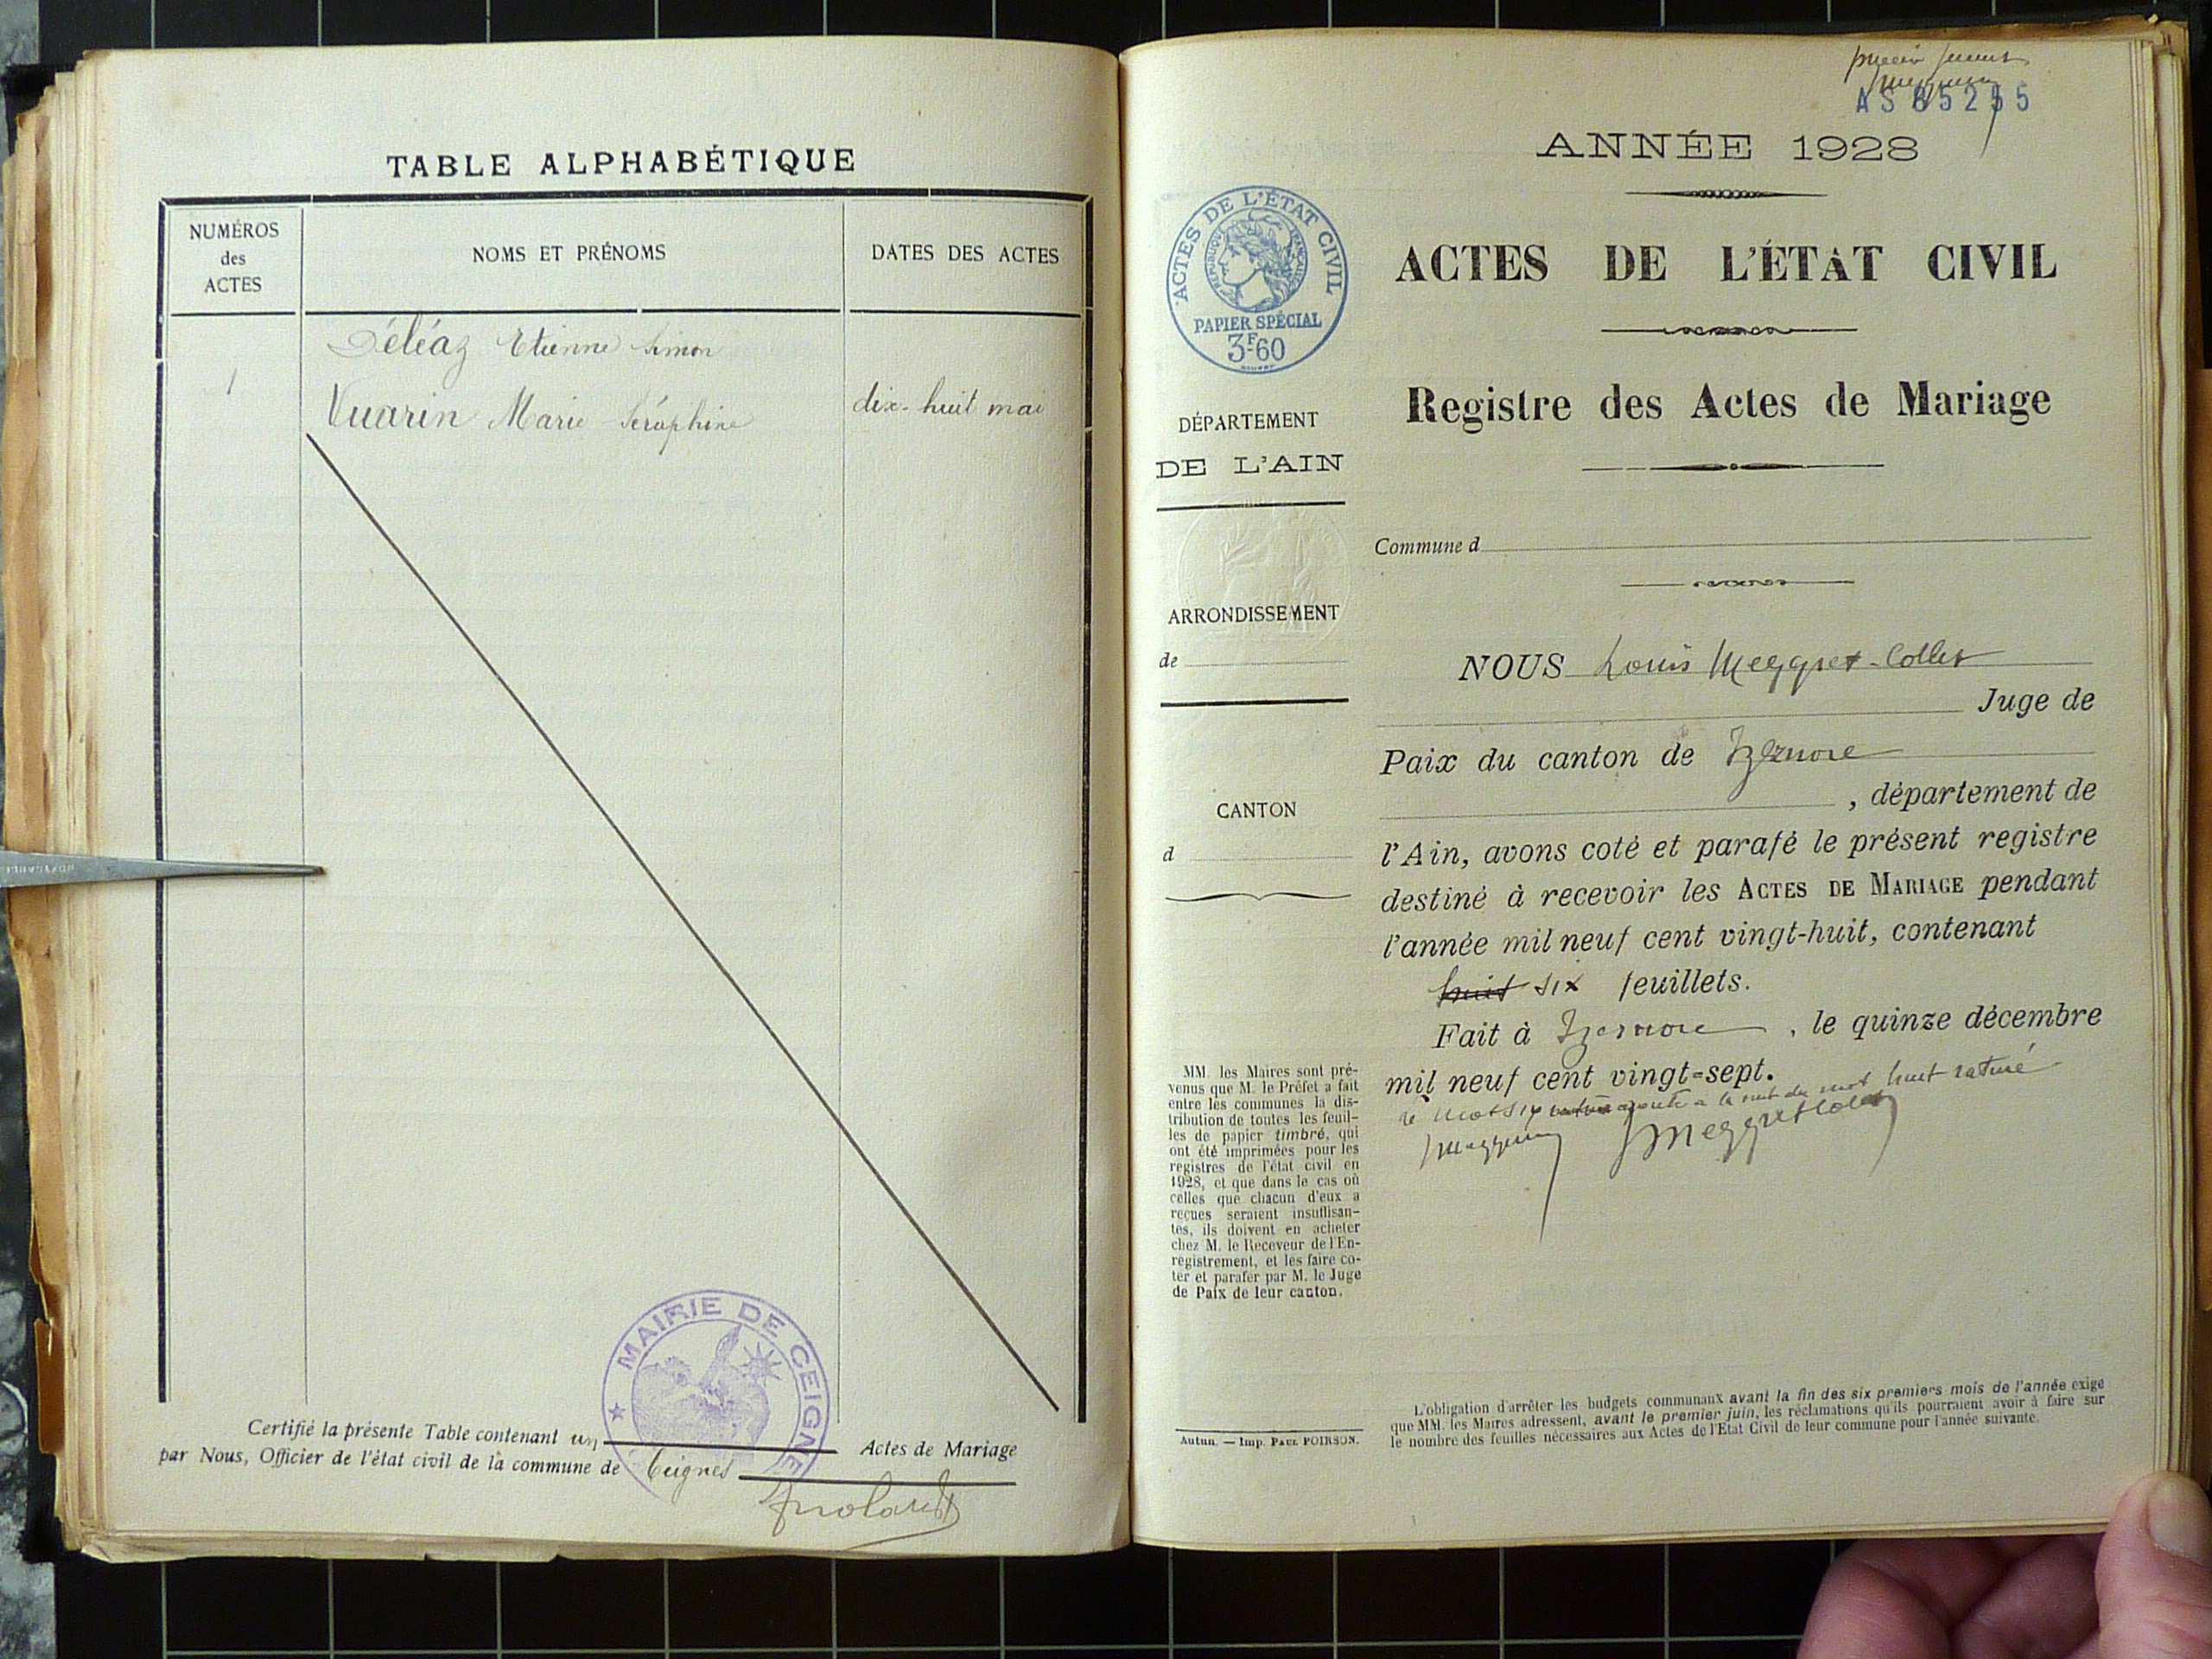 TABLE ALPHABÉTIQUE
NUMÉROS
des
ACTES
NOMS ET PRÉNOMS
DATES DES ACTES
Déléaz Etienne Simon
1
Vuarin Marie Séraphine
dix-huit mai
MAIRIE DE CEIGNES
Certifié la présente Table contenant un Actes de Mariage
par Nous, Officier de l'état civil de la commune de Ceignes
premier feuillet
ANNÉE 1928
ACTES DE L'ÉTAT CIVIL
RÉPUBLIQUE FRANÇAISE
PAPIER SPÉCIAL
3F60
ACTES DE L'ÉTAT CIVIL
Registre des Actes de Mariage
DÉPARTEMENT
DE L'AIN
Commune d
ARRONDISSEMENT
de
CANTON
d
NOUS Louis Meggret-Collet
Juge de
Paix du canton de Izernore
, département de
l'Ain, avons coté et parafé le présent registre
destiné à recevoir les ACTES DE MARIAGE pendant
l'année mil neuf cent vingt-huit, contenant
huit six feuillets.
Fait à Izernore, le quinze décembre
mil neuf cent vingt-sept.
le mot six ajouté à la suite du mot huit raturé
Meggret Collet
MM. les Maires sont pré-
venus que M. le Préfet a fait
entre les communes la dis-
tribution de toutes les feuil-
les de papier timbré, qui
ont été imprimées pour les
registres de l'état civil en
1928, et que dans le cas où
celles que chacun d'eux a
reçues seraient insuffisan-
tes, ils doivent en acheter
chez M. le Receveur de l'En-
registrement, et les faire co-
ter et parafer par M. le Juge
de Paix de leur canton.
Autun. — Imp. PAUL POIRSON.
L'obligation d'arrêter les budgets communaux avant la fin des six premiers mois de l'année exige
que MM. les Maires adressent, avant le premier juin, les réclamations qu'ils pourraient avoir à faire sur
le nombre des feuilles nécessaires aux Actes de l'Etat Civil de leur commune pour l'année suivante.